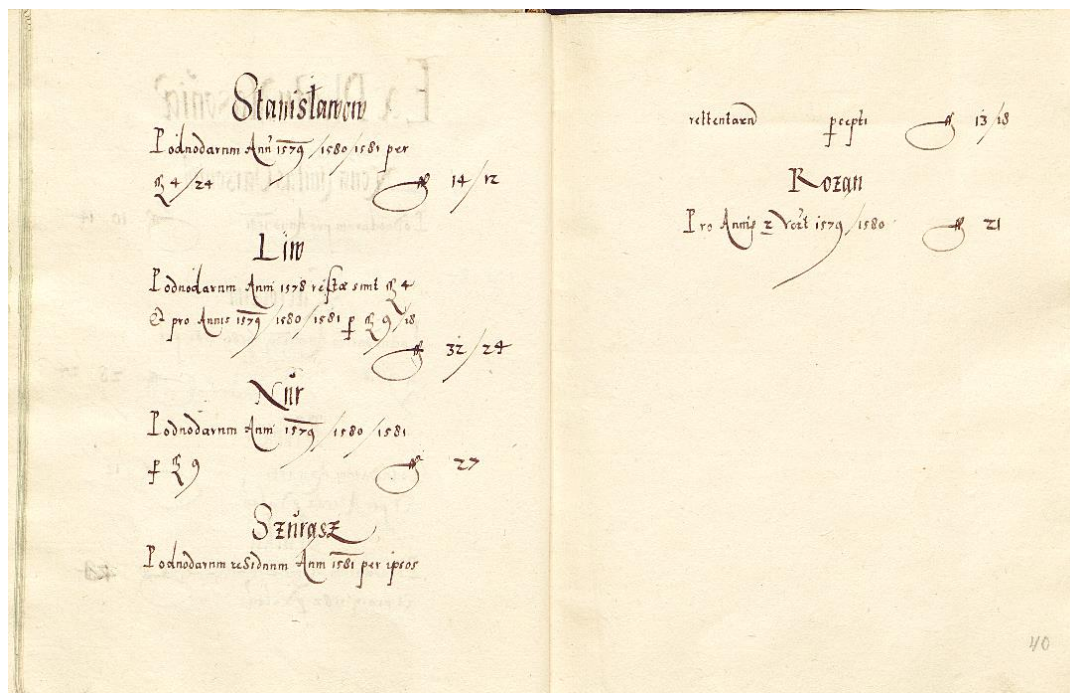 Stanisławow
Podwodarum Anni 1579/1580/1581 per
fl 4/24 fl 14/12
Liw
Podwodarum Anni 1578 restæ sunt fl 4
Et pro Annis 1579/1580/1581 p fl 9/18
fl 32/24
Nur
Podwodarum Anni 1579/1580/1581
p fl 9 fl 27
Szurasz
Podwodarum residuum Anni 1581 per ipsos
retentarum pcepti fl 13/18
Rozan
Pro Annis 2 1579/1580 fl 21
40